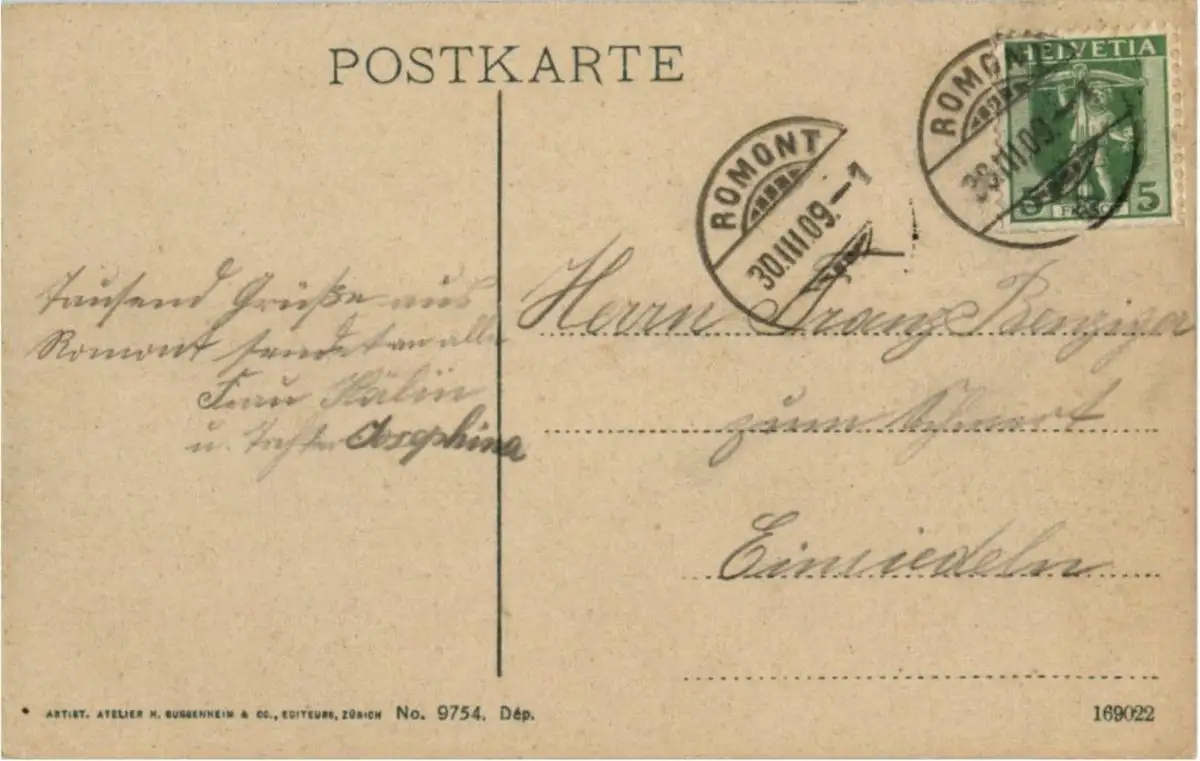 POSTKARTE
HELVETIA
5 5
ROMONT
30.III.09.-1
ROMONT
30.III.09.-1
Tausend Grüße aus
Romont sendet an alle
Frau Kälin
u. Tochter Josephina
Herrn Franz Benziger
zum Schwert
Einsiedeln
ARTIST. ATELIER H. GUGGENHEIM & CO., EDITEURS, ZÜRICH No. 9754. Dép.
169022